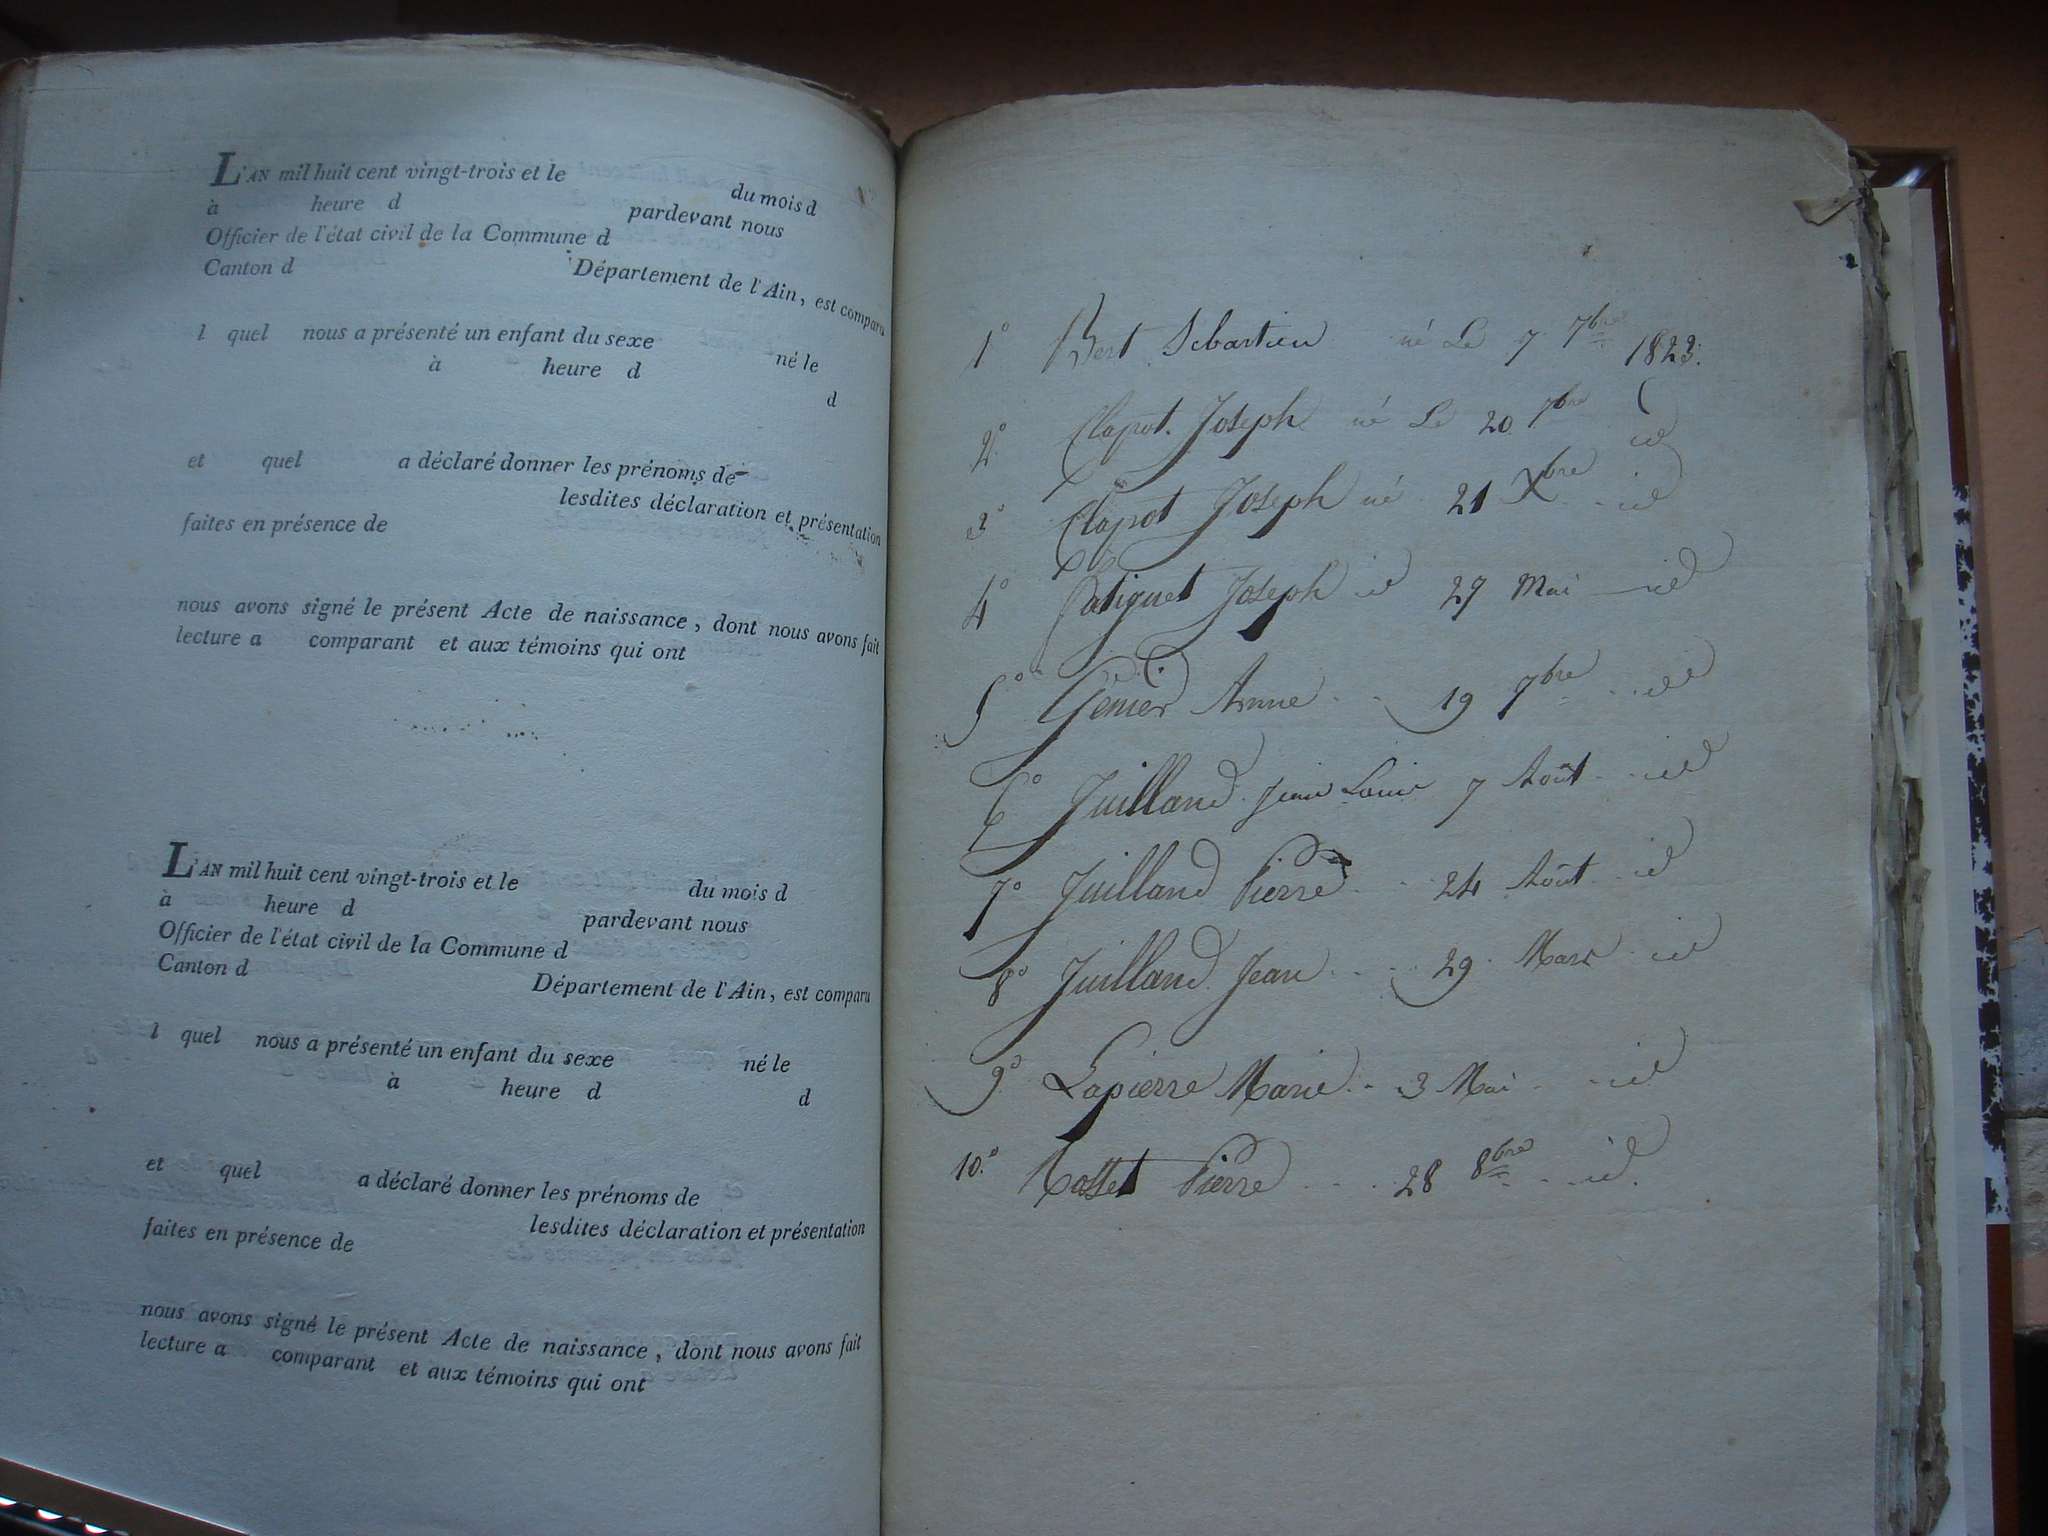 L'AN mil huit cent vingt-trois et le du mois d
à heure d pardevant nous
Officier de l'état civil de la Commune d
Canton d Département de l'Ain, est comparu
l quel nous a présenté un enfant du sexe né le
à heure d
d
et quel a déclaré donner les prénoms de
lesdites déclaration et présentation
faites en présence de
nous avons signé le présent Acte de naissance, dont nous avons fait
lecture a comparant et aux témoins qui ont
L'AN mil huit cent vingt-trois et le du mois d
à heure d pardevant nous
Officier de l'état civil de la Commune d
Canton d Département de l'Ain, est comparu
l quel nous a présenté un enfant du sexe né le
à heure d
d
et quel a déclaré donner les prénoms de
lesdites déclaration et présentation
faites en présence de
nous avons signé le présent Acte de naissance, dont nous avons fait
lecture a comparant et aux témoins qui ont
1° Bert Sebastien né Le 7 7bre 1823.
2° Clapot Joseph né Le 20 7bre id
3° Clapot Joseph né 21 Xbre id
4° Joseph id 27 Mai id
5° Genier Anne 19 7bre id
6° Juilland Jean Louis 7 Août id
7° Juilland Pierre 24 Août id
8° Juilland Jean 29 Mars id
9° Lapierre Marie 3 Mai id
10° Pierre 28 8bre id